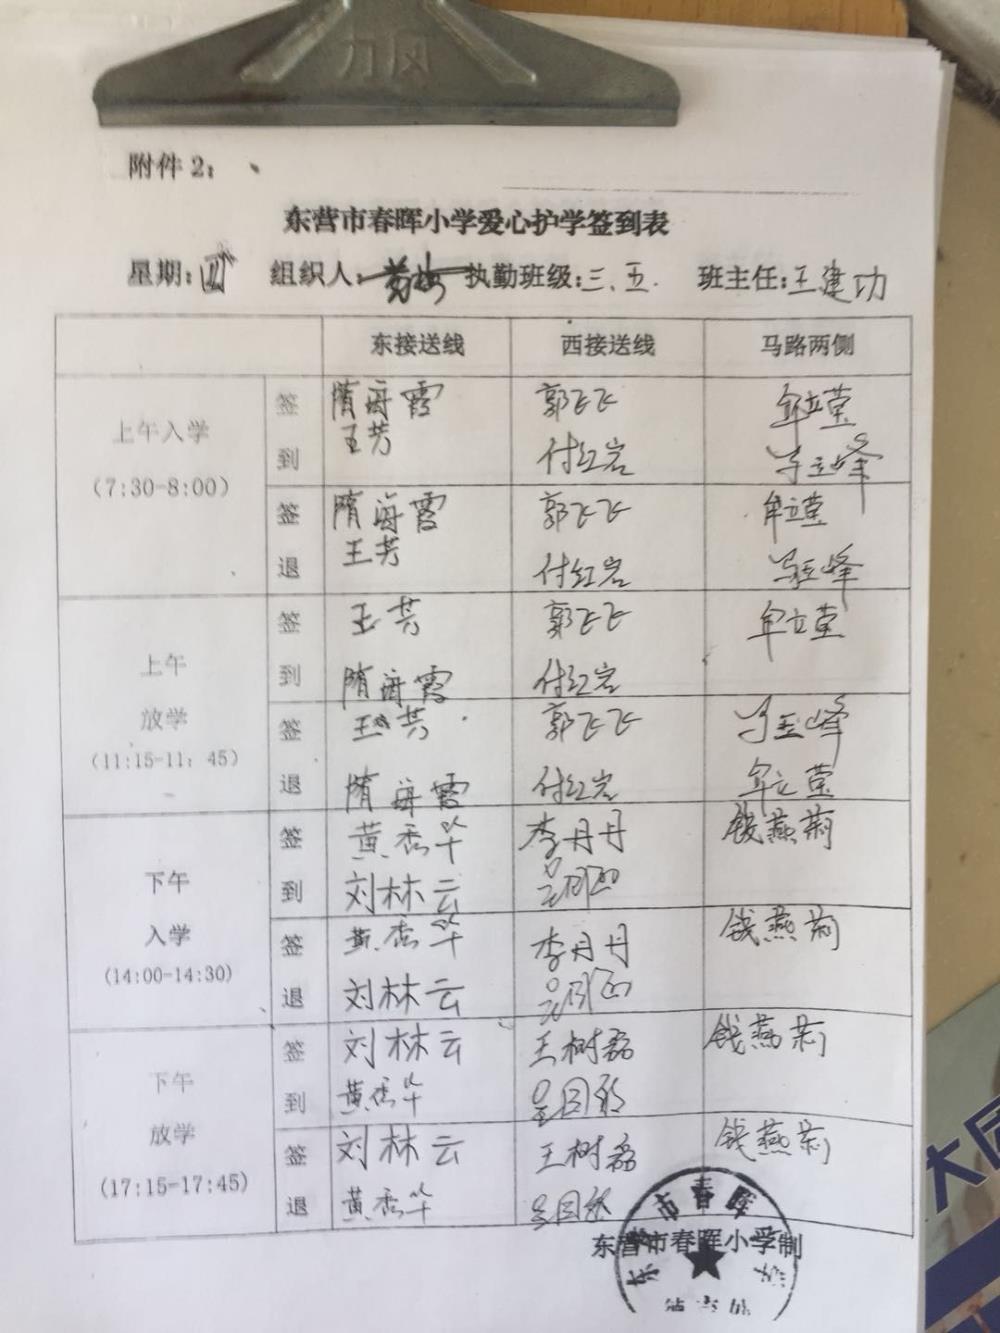 力风
附件2：
东营市春晖小学爱心护学签到表
星期:四 组织人: 执勤班级:三.五. 班主任:王建功
东接送线 西接送线 马路两侧
上午入学
(7:30-8:00)
签到
隋海霞 郭飞飞 牟立荣
王芳 付红岩
签退
隋海霞 郭飞飞 牟立荣
王芳 付红岩
上午
放学
(11:15-11：45)
签到
王芳 郭飞飞 牟立荣
隋海霞 付红岩
签退
王芳 郭飞飞
隋海霞 付红岩 牟立荣
下午
入学
(14:00-14:30)
签到
黄秀华 李丹丹 钱燕莉
刘林云
签退
黄秀华 李丹丹 钱燕莉
刘林云
下午
放学
(17:15-17:45)
签到
刘林云 王树磊 钱燕莉
黄秀华
签退
刘林云 王树磊 钱燕莉
黄秀华
东营市春晖小学制
市春晖
大同